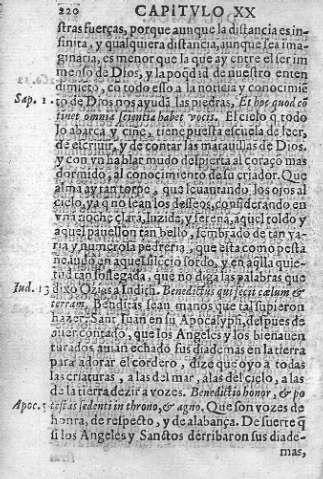 220 CAPITVLO XX
stras fuerças, porque aunque la distãcia es in-
finita, y qualquiera distãcia, aunque sea ima-
ginaria, es menor que la que ay entre el ser im
menso de Dios, y la poq̃dad de nuestro enten
dimiẽto, cõ todo esso a la noticia y conocimiẽ
Sap. 1. to de Dios nos ayudã las piedras, Et hoc quod cõ
tinet omnia scientia habet vocis. El cielo q̃ todo
lo abarca y ciñe, tiene puesta escuela de leer,
de escriuir, y de contar las marauillas de Dios.
y con vn hablar mudo despierta al coraçõ mas
dormido, al conocimiento de su criador. Que
alma ay tan torpe, que leuantando los ojos al
cielo, ya q̃ no sean los desseos, considerando en
vna noche clara, luzida, y serena, aquel toldo y
aquel pauellon tan bello, sembrado de tan va-
ria y numerosa pedreria, que esta como pesta
ñeando en aquel silẽcio sordo, y en aq̃lla quie-
tud tan sossegada, que no diga las palabras que
Iud. 13 dixo Ozias a Iudich. Benedictus qui fecit cælum &
terram. Benditas sean manos que tal supieron
hazer. Sant Iuan en su Apocalyp̃. despues de
auer contado, que los Angeles y los bienauen
turados auian echado sus diademas en la tierra
para adorar el cordero, dize que oyo a todas
las criaturas, a las del mar, a las del cielo, a las
de la tierra dezir a vozes. Benedictio honor, & po
Apoc. 5 testas sedenti in throno, & agno. Que son vozes de
honra, de respecto, y de alabãça. De suerte q̃
si los Angeles y Sanctos derribaron sus diade-
mas,